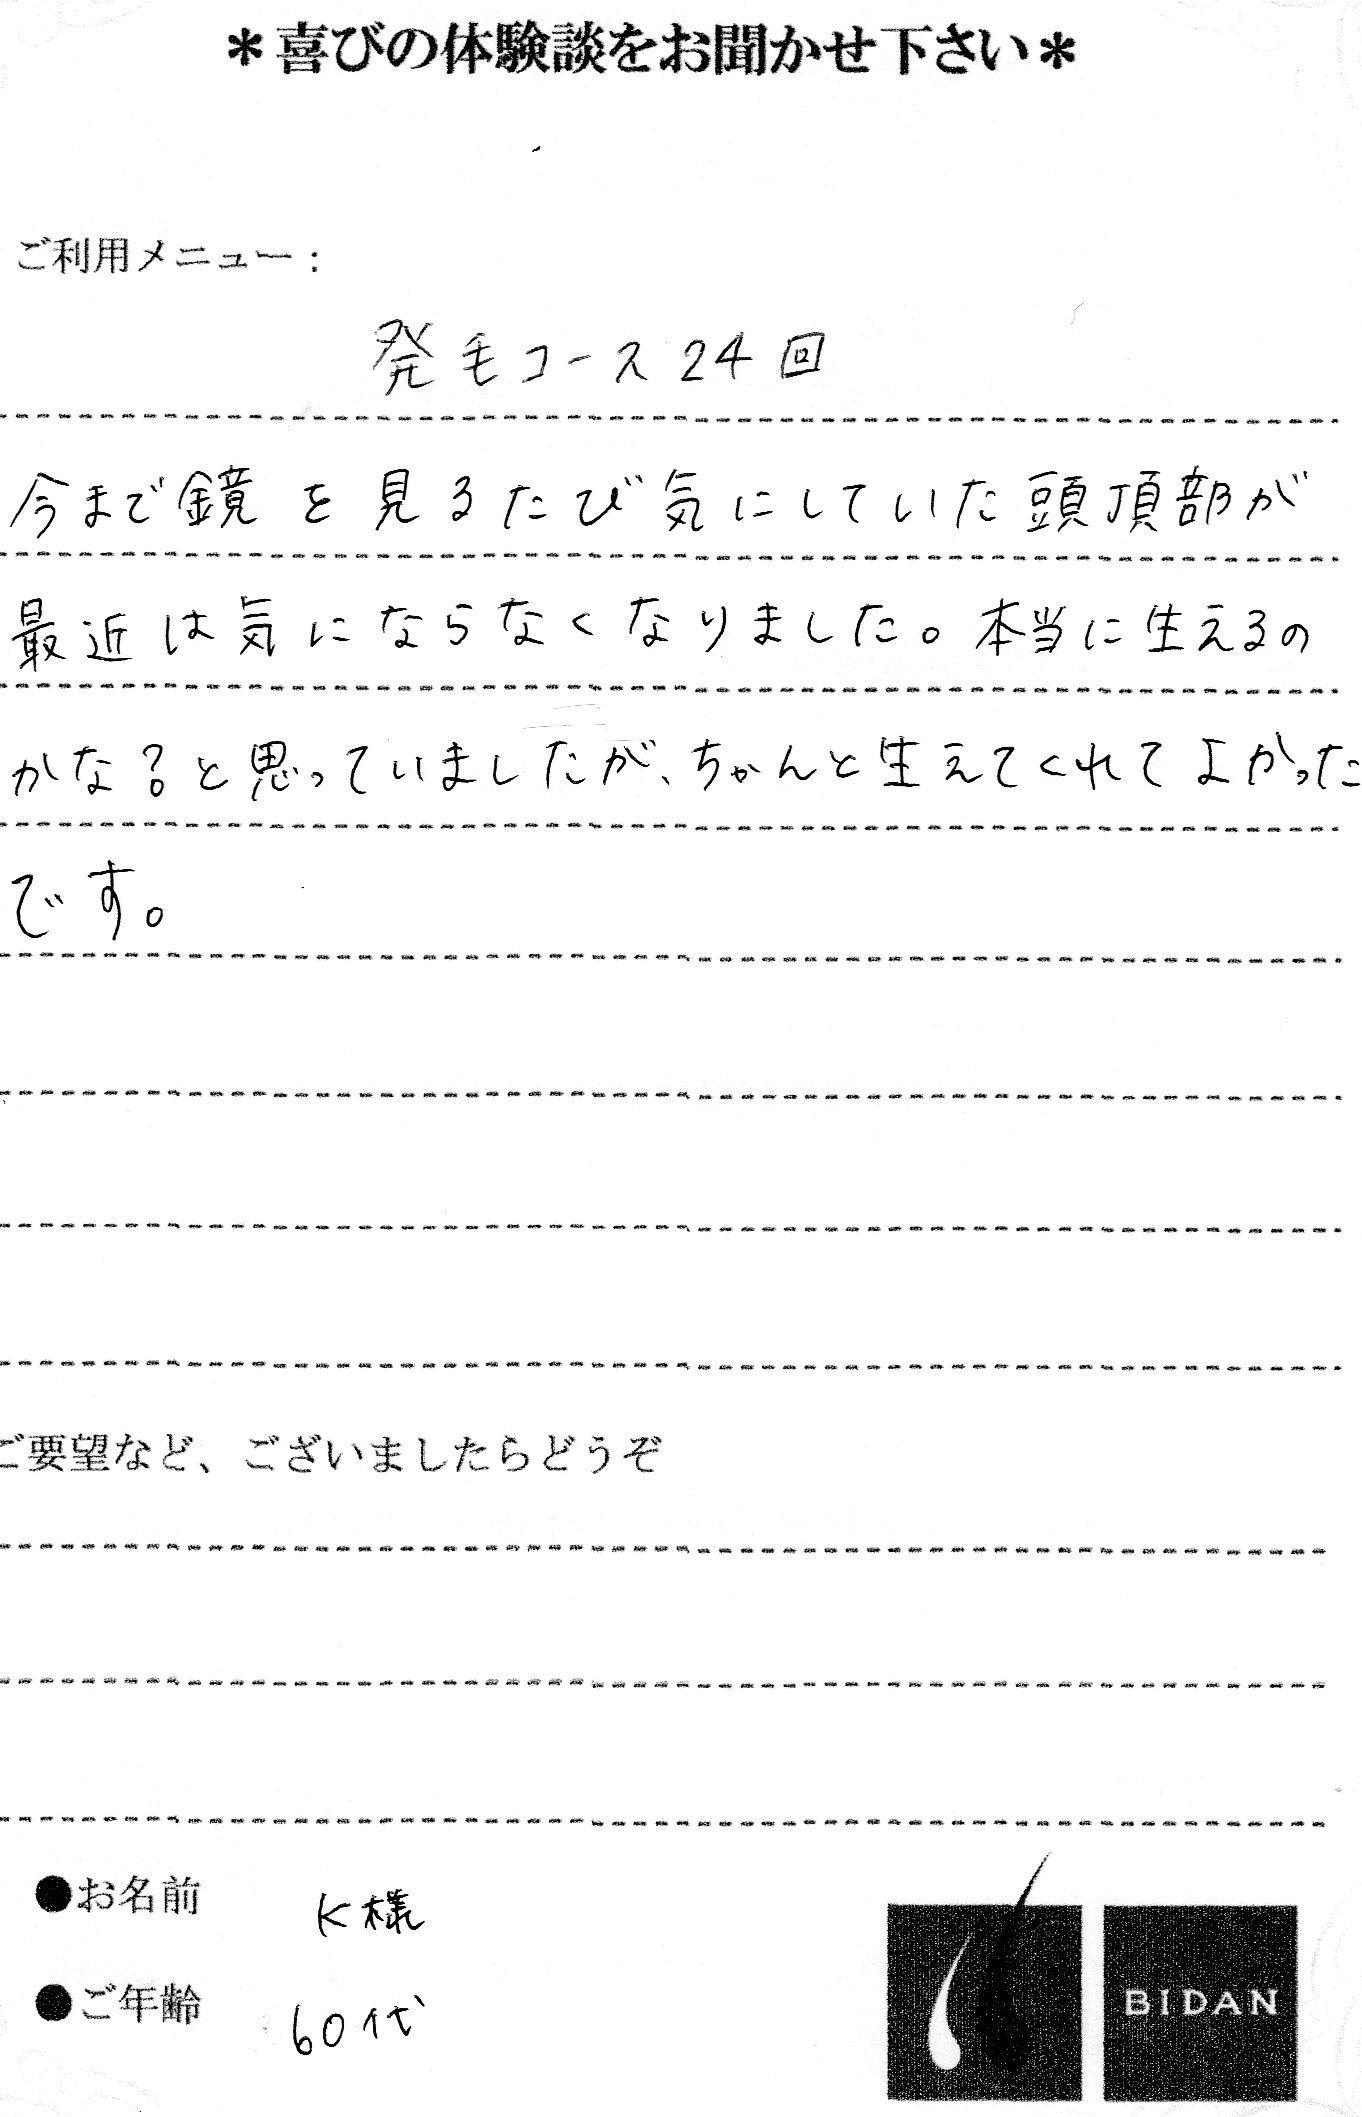 ＊喜びの体験談をお聞かせ下さい＊
ご利用メニュー：
発毛コース24回
今まで鏡を見るたび気にしていた頭頂部が
最近は気にならなくなりました。本当に生えるの
かな？と思っていましたが、ちゃんと生えてくれてよかった
です。
ご要望など、ございましたらどうぞ
●お名前 K様
●ご年齢 60代
BIDAN